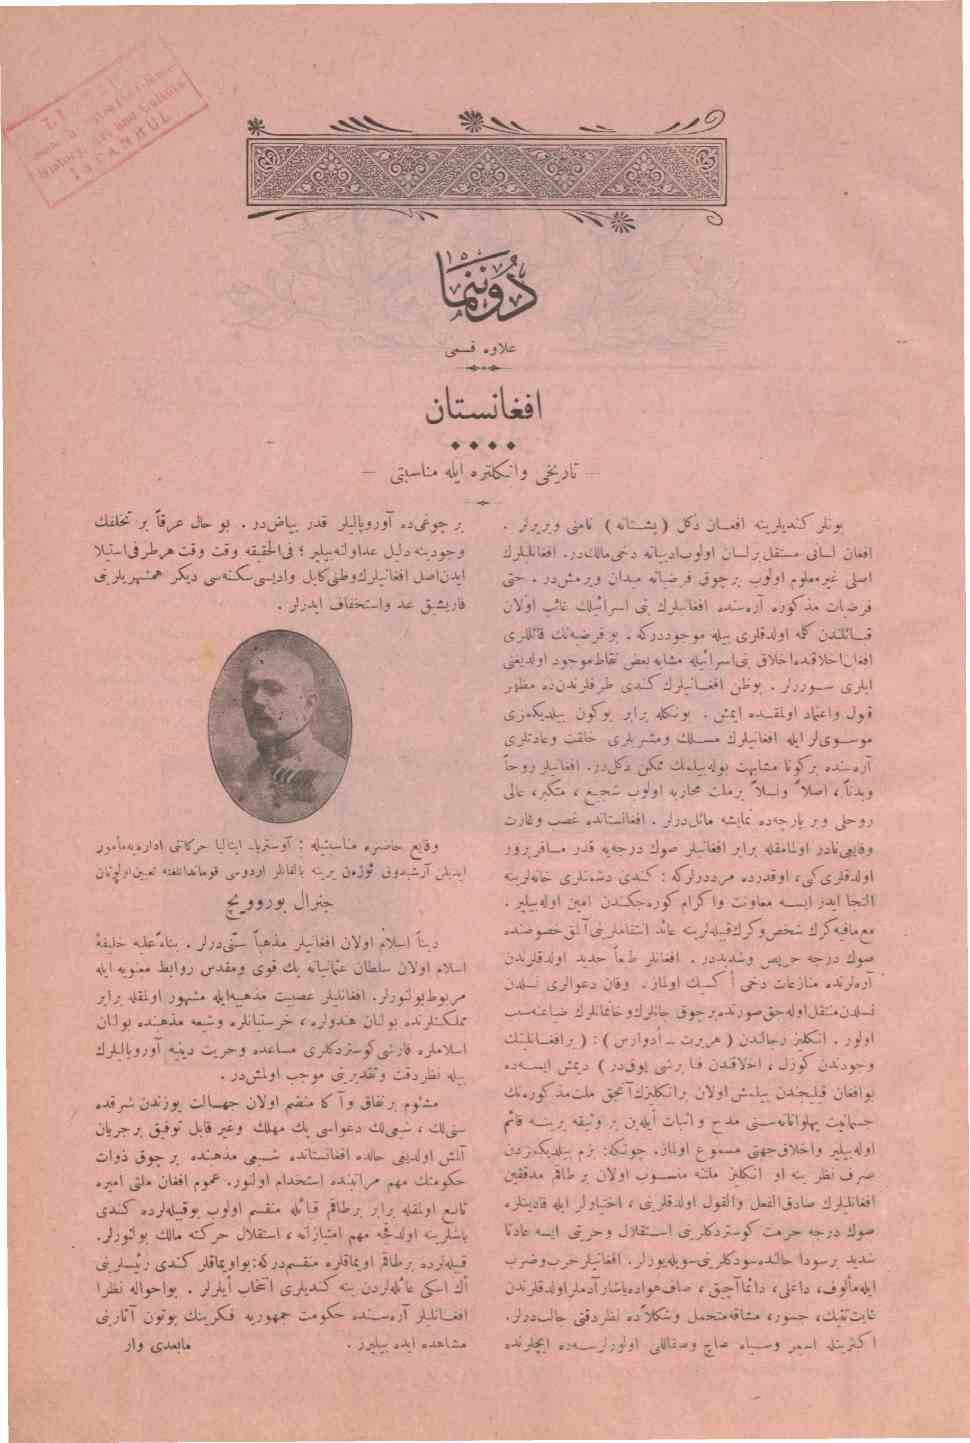 دوننما
علاوه قسمى
افغانستان
— تاريخى وانكلتره ايله مناسبتى —
بونلر كنديلرينه افغان دكل (پشتانه) نامنى ويريرلر .
افغان لسانى مستقل برلسان اولوب ادبياته دخى مالكدر. افغانليلرك
اصلى غير معلوم اولوب برچوق فرضياته ميدان ويرمشدر . حتى
فرضيات مذكوره آره‌سنده افغانيلرك بنى اسرائيلك غائب اولان
قبائلندن كله اولدقلرى بيله موجوددركه . بو فرضيه‌نك قائللرى
افغان اخلاقنده اخلاق بنى اسرائيله مشابه بعض نقاط موجود اولديغنى
ايلرى سوررلر . بوظن افغانيلرك كندى طرفلرندن ده مظهر
قبول واعتماد اولمقده ايمش . بونكله برابر بوكون بيلديكمزى
موسوى‌لر ايله افغانيلرك مسلك ومشربلرى خلقت وعادتلرى
آره‌سنده بركونا مشابهت بوله‌بيلمك ممكن دكلدر. افغانيلر روحاً
وبدناً ، اصلاً ونسلاً برملت محاربه اولوب شجيع ، متكبر، عالى
روحلى وبر پارچه‌ده نمايشه مائلدرلر . افغانستانده غصب وغارت
وقايعى نادر اولمامقله برابر افغانيلر صوك درجه‌يه قدر مسافرپرور
اولدقلرى كبى، اوقدرده مرددرلركه : كندى دشمنلرى خانه‌لرينه
التجا ايدر ايسه معاونت واكرام كوره‌جكندن امين اوله‌بيلير .
مع مافيه كرك شخص وكرك قبيله‌لرينه عائد انتقاملرينى آلمق خصوصنده
صوك درجه حريص وشديددر . افغانلر طبعاً حديد اولدقلرندن
آره‌لرنده منازعات دخى أكسيك اولماز. وقان دعوالرى نسلدن
نسلدن منتقل اوله‌جق صورتده برچوق جانلرك وخانمانلرك ضياعنه سبب
اولور . انكليز رجالندن (هربرت ـ أدوارس) : (برافغانلينك
وجودندن كوزل ، اخلاقندن فنا برشى يوقدر) ديمش ايسه‌ده
بوافغان قيليجندن بيلمش اولان برانكليزك آنجق ملت مذكوره‌نك
جسمانيت پهلوانانه‌سنى مدح واثبات أيلين بر وثيقه يرينه قائم
اوله‌بيلير واخلاق جهتى مسموع اولماز. چونكه: بزم بيلديكمزدن
صرف نظر ينه او انكليز ملتنه منسوب اولان بر طاقم مدققين
افغانليلرك صادق الفعل والقول اولدقلرينى ، اختيارلر ايله قادينلره
صوك درجه حرمت كوستردكلرينى استقلال وحريتى ايسه عادتا
شديد برسودا حالنده سودكلرينى سويله‌يورلر. افغانيلر حرب وضرب
ايله مألوف، داغلى ، دائما آچيق ، صاف هواده ياشار آدملر اولدقلرندن
غايت چويك، جسور، مشاقه متحمل وشكلاً ده نظردقتى جالبدرلر.
اكثريتله اسمر وسياه صاچ وصقاللى اولورلرسه‌ده ايچلرنده
بر چوغى‌ده آوروپاليلر قدر بياضدر . بو حال عرقاً بر تخلفك
وجودينه دليل عداولنه‌بيلير ؛ فى الحقيقه وقت وقت هر طرفى استيلا
ايدن اصل افغانيلرك وطنى كابل واديسى سكنه‌سى ديكر همشهريلرينى
قاريشيق عد واستخفاف ايدرلر .
وقايع حاضره مناسبتيله : آوستريا ـ ايتاليا حركاتنى اداره‌يه مأمور
ايديلن آرشيدوق ئوژەن يرينه بالقانلر اردوسى قوماندانلغنه تعيين اولونان
جنرال بوروويچ
ديناً اسلام اولان افغانيلر مذهباً سنى‌درلر . بناءً عليه خليفهٔ
اسلام اولان سلطان عثمانيانه پك قوى ومقدس روابط معنويه ايله
مربوط بولنورلر. افغانليلر عصبيت مذهبيه ايله مشهور اولمقله برابر
مملكتلرنده بولنان هندولره ، خرستيانلره وشيعه مذهبنده بولنان
اسلاملره قارشى كوستردكلرى مساعده وحريت دينيه آوروپاليلرك
بيله نظر دقت وتقديرينى موجب اولمشدر .
مشئوم برنفاق وآ كا منضم اولان جهالت يوزندن شرقده
سنى‌لك ، شيعى‌لك دعواسى پك مهلك وغير قابل توفيق برجريان
آلمش اولديغى حالده افغانستانده شيعى مذهبنده برچوق ذوات
حكومتك مهم مراتبنده استخدام اولنور. عموم افغان ملتى اميره
تابع اولمقله برابر برطاقم قبائله منقسم اولوب بوقبيله‌لرده كندى
باشلرينه اولدقچه مهم امتيازاته ، استقلال حركته مالك بولنورلر.
قبيله‌لرده برطاقم اويماقلره منقسمدركه: بواويماقلر كندى رئيسلرينى
اك اسكى عائله‌لردن ينه كنديلرى انتخاب أيلرلر . بواحواله نظرا
افغانليلر آره‌سنده حكومت جمهوريه فكرينك بوتون آثارينى
مشاهده ايده بيليرز .
مابعدى وار
ISTANBUL